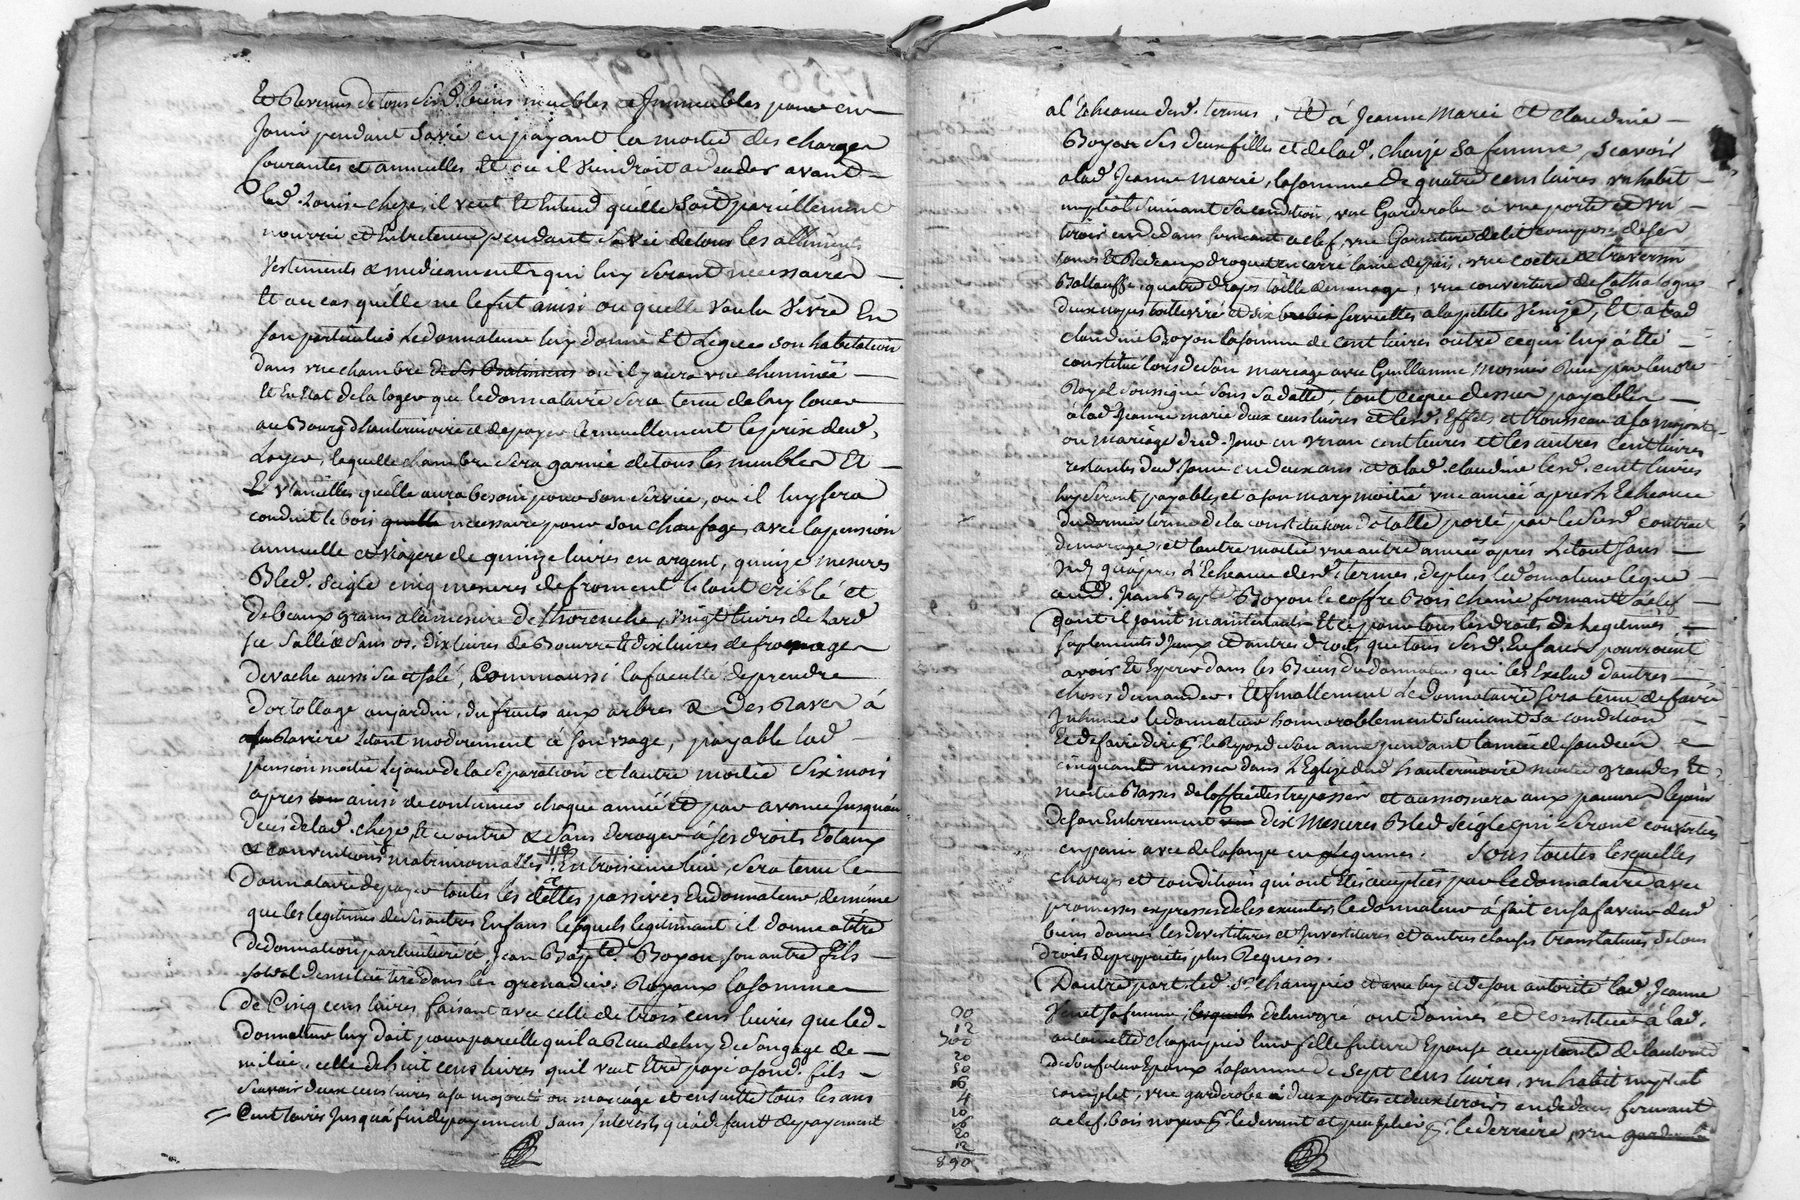 Et Revenus de tous sesd. biens meubles et Immeubles pour en
Jouir pendant sa vie en payant la moitié des charges
courantes et annuelles. Et ou il viendroit a deceder avant
lad. Louise cheze, il veut Et Entend qu'elle soit pareillement
nourrie et Entretenue pendant sa vie de tous les alliments
vestements & medicaments qui luy seront necessaires
Et au cas qu'elle ne le fut ainsi ou quelle voulu vivre En
son particulier Le donnateur luy donne Et Legue son habitation
dans une chambre de ses Batiments ou il y aura une cheminée
Et En Etat de la loger que le donnataire sera tenu de luy louer
au Bourg d'hauterivoire & de payer annuellement le prix dud.
Loyer, laquelle chambre sera garnie de tous les meubles Et
Ustancilles qu'elle aura besoin pour son service, ou il luy sera
conduit le bois necessaire pour son chaufage, avec la pension
annuelle et viagere de quinze livres en argent, quinze mesures
Bled seigle cinq mesures de froment le tout criblé et
de beaux grains a la mesure de vingt livres de lard
sec sallé & sans os, dix livres de Beurre Et dix livres de fromages
de vache aussi sec et salé, Comm'aussi la faculté de prendre
d'ortollage au jardin, du fruits aux arbres & Des Raves à
la Raviere Letout moderement à son usage, payable lad.
pension moitié Lejour de la separation et l'autre moitié six mois
apres ainsi de continuer chaque année Et par avance Jusqu'au
deces de lad. cheze, Et en outre & sans deroger à ses droits Dotaux
& conventions matrimonialles. En troisieme lieu, sera tenu le
Donnataire de payer toutes les dettes passives du donnateur, de même
que les legitimes de ses autres Enfans lesquels legitimant il donne à titre
de donnation particuliere à, Jean Bapte. Boyon, son autre fils
soldat de milice tiré dans les grenadiers Royaux la somme
de Cinq cens livres faisant avec celle de trois cens livres que led.
donnateur luy doit pour pareille qu'il a Recu de luy de son gage de
milice, celle de huit cens livres qu'il veut Etre payé asond. fils
scavoir deux cens livres a sa majorité ou mariage et ensuitte tous les ans
Cent livres Jusqu'a fin de payement sans Interests qu'a defaut de payement
al'Echeance desd. termes, Et à Jeanne Marie et claudine
Boyon ses deux filles et de lad. cheze sa femme, scavoir
a lad. Jeanne Marie, la somme De quatre cens livres, un habit
nuptial suivant sa condition, une Garderobe à une porte et un
tiroir en dedans fermant a clef, une Garniture de lit composée de ses
tours Et Rideaux droguet en carré laine de pais, une coetre & traversin
Ballouffe, quatre draps toille de menage, une couverture de Cathalogne
deux napes et six serviettes a la petite Venize, Et a lad.
claudine Boyon la somme de cent livres outre ce qui luy à Eté
constitué lors de son mariage avec Guillaume Mosnier Reçu par le nore
Royal soussigné sous sa datte, tout ce que dessus payables
à lad. Jeanne marie deux cens livres et lesd. Effets et trousseau a sa majorité
ou mariage dud. Jour en un an cent livres et les autres cent livres
restantes dud. Jour en deux ans, et a lad. claudine lesd. cent livres
luy seront payables et a son mary moitié une année apres L'Echeance
du dernier terme de la constitution dotalle porté par le susd. contract
de mariage, et l'autre moitié une autre année apres Le tout sans
qu'apres L'Echeance desd. termes, de plus led. donnateur legue
aud. Jean Bapte. Boyon le coffre Bois chesne fermant à clef
dont il jouit maintenant. Et ce pour tous les droits de legitimes,
suplements d'Iceux et autres droits que tous sesd. Enfans pourroient
avoir Et Esperer dans les Biens du donnateur qui les Exclud d'autres
choses demander. Et finallement Le donnataire sera tenu de faire
Inhumer le donnateur honnorablement suivant sa condition
Et de faire dire pr. le Repos de son ame pendant l'année de son deces
cinquante messes dans L'Eglise dud. hauterivoire moitié grandes Et
moitié Basses de l'office des trepassés et aumosnera aux pauvres le jour
de son Enterrement dix Mesures Bled seigle qui seront converties
en pain avec de la soupe en legumes. Sous toutes lesquelles
charges et conditions qui ont Eté acceptées par le donnataire avec
promesses expresses de les executer, le donnateur à fait en sa faveur desd.
biens donnés les devestitures et Investitures et autres clauses translatives de tous
droits de proprietés plus Requises.
D'autre part led. Sr. Chanquié et avec luy et de son autorité lad. Jeanne
Venet sa femme, de luy ont donnés et constitué à lad.
antoinette Chapuzié leur fille future Epouse acceptante de l'autorité
de son futur Epoux La somme de sept cens livres, un habit nuptial
complet, une garderobe à deux portes et deux tiroirs en dedans fermant
a clef, bois noyer pr. le devant et peuplier pr. le derriere, une
90
12
300
20
50
16
4
10
16
20
12
890